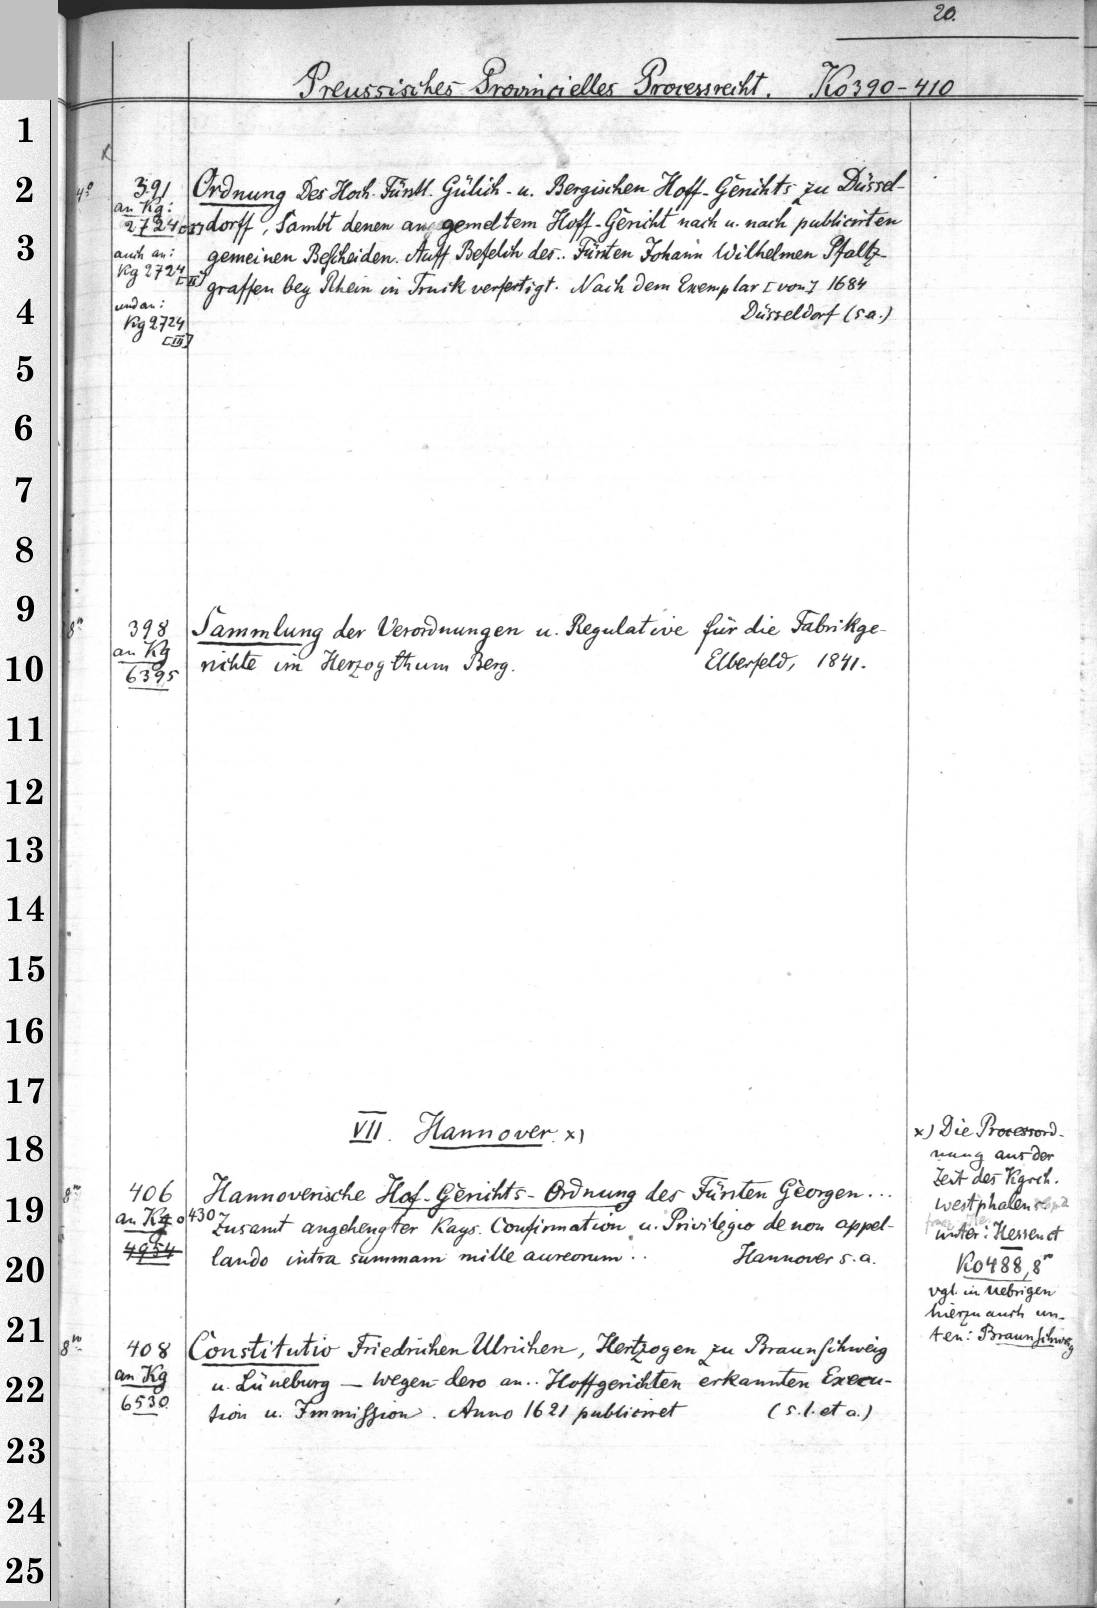 20.
Preussisches Provincielles Processrecht. Ko 390-410
1
2
3
4
5
6
7
8
9
10
11
12
13
14
15
16
17
18
19
20
21
22
23
24
25
4º
391
an Kg:
2724 [I]
auch an:
Kg 2724
[II]
und an:
Kg 2724
[III]
Ordnung Des Hoch-Fürstl. Gülich- u. Bergischen Hoff-Gerichts zu Düssel-
dorff, Sambt denen an gemeltem Hoff-Gericht nach u. nach publicirten
gemeinen Bescheiden. Auff Befelch des.. Fürsten Johann Wilhelmen Pfaltz-
graffen bey Rhein in Truck verfertigt. Nach dem Exemplar [von] 1684
Düsseldorf (s.a.)
8º
398
an Kg
6395
Sammlung der Verordnungen u. Regulative für die Fabrikge-
richte im Herzogthum Berg. Elberfeld, 1841.
VII. Hannover. x)
8º
406
an Ko 430
4954
Hannoverische Hof-Gerichts-Ordnung des Fürsten Georgen...
Zusamt angehengter Kays. Confirmation u. Privilegio de non appel-
lando intra summam mille aureorum.. Hannover s.a.
8º
408
an Kg
6530
Constitutio Friedrichen Ulrichen, Hertzogen zu Braunschweig
u. Lüneburg — wegen dero an.. Hoffgerichten erkannten Execu-
tion u. Immission. Anno 1621 publiciret (s.l. et a.)
x) Die Processord-
nung aus der
Zeit des Kgrch.
Westphalen
unter: Hessen et
Ko 488, 8º
vgl. im Uebrigen
hierzu auch un-
ten: Braunschweig